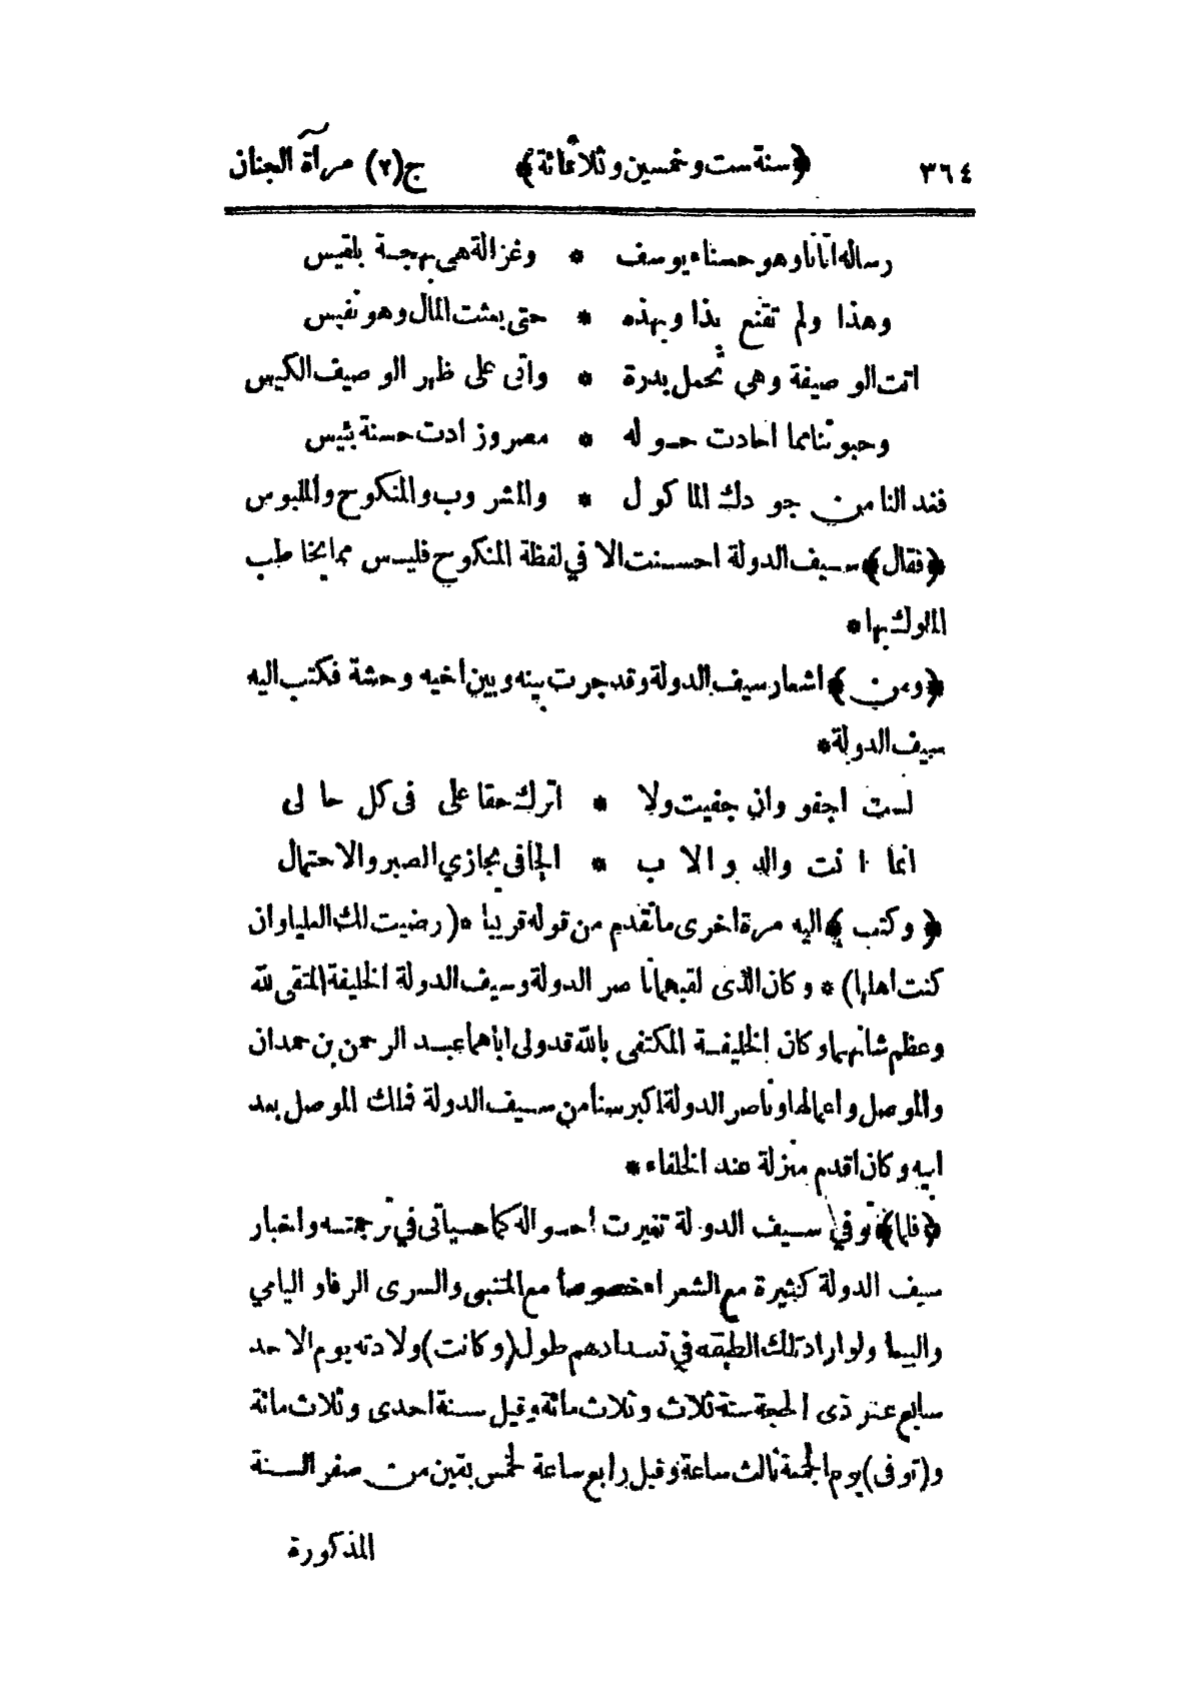 ٣٦٤ ﴿سنة ست وخمسين وثلاثمائة﴾ ج(٢) مرآة الجنان
رساله اتانا وهو حسناء يوسف * وغزالة هى بهجة بلقيس
وهذا ولم تقنع بذا وبهذه * حتى بعثت المال وهو نفيس
اتت الوصيفة وهي تحمل بدرة * واتى على ظهر الوصيف الكيس
وحبوتنا مما اجادت حوله * مصر وزادت حسنة تنيس
فغد النا من جودك الماكول * والمشروب والمنكوح والملبوس
﴿فقال﴾ سيف الدولة احسنت الا في لفظة المنكوح فليس مما يخاطب
الملوك بها *
﴿ومن﴾ اشعار سيف الدولة وقد جرت بينه وبين اخيه وحشة فكتب اليه
سيف الدولة *
لست اجفو وان جفيت ولا * اترك حقا على فى كل حالى
انما انت والد والاب * الجافى يجازي الصبر والاحتمال
﴿وكتب﴾ اليه مرة اخرى ما تقدم من قوله قريبا * (رضيت لك العليا وان
كنت اهلها) * وكان الذى لقبهما ناصر الدولة وسيف الدولة الخليفة المتقى لله
وعظم شانهما وكان الخليفة المكتفى بالله قد ولى اباهما عبد الرحمن بن حمدان
والموصل واعمالها وناصر الدولة اكبر سنا من سيف الدولة فملك الموصل بعد
ابيه وكان اقدم منزلة عند الخلفاء *
﴿فلما﴾ توفي سيف الدولة تغيرت احواله كما سياتى في ترجمته واخبار
سيف الدولة كثيرة مع الشعراء خصوصا مع المتنبى والسرى الرفاو اليامي
والببغا ولوارادتلك الطبقه في تعدادهم طول (وكانت) ولادته يوم الاحد
سابع عشر ذى الحجة سنة ثلاث وثلاث مائة وقيل سنة احدى وثلاث مائة
و(توفى) يوم الجمعة ثالث ساعة وقيل رابع ساعة لخمس بقين من صفر السنة
المذكورة